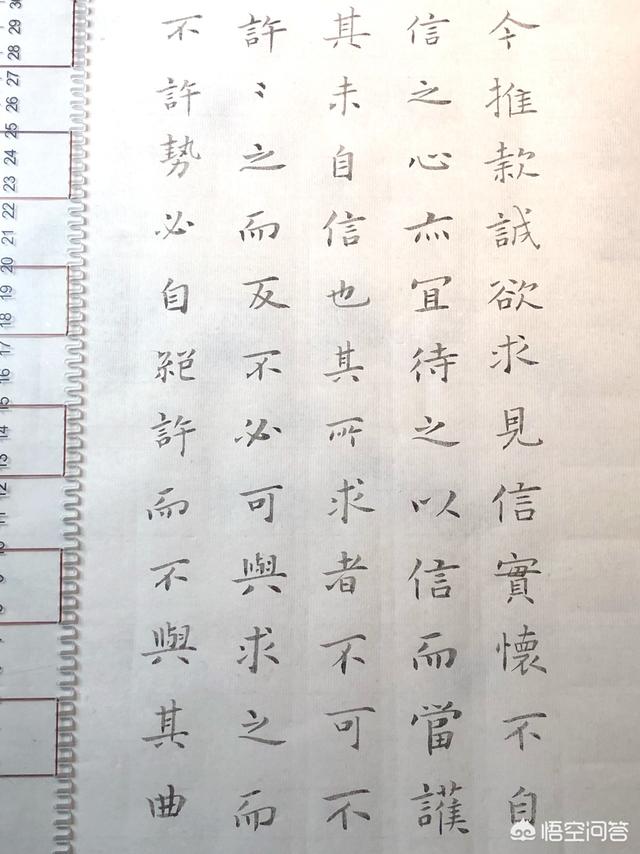 今推款誠欲求見信實懷不自
信之心亦冝待之以信而當護
其未自信也其所求者不可不
許〻之而反不必可與求之而
不許勢必自絕許而不與其曲
30 29 28 27 26 25 24 23 22 21 20 19 18 17 16 15 14 13 12 11 10 9 8
悟空问答